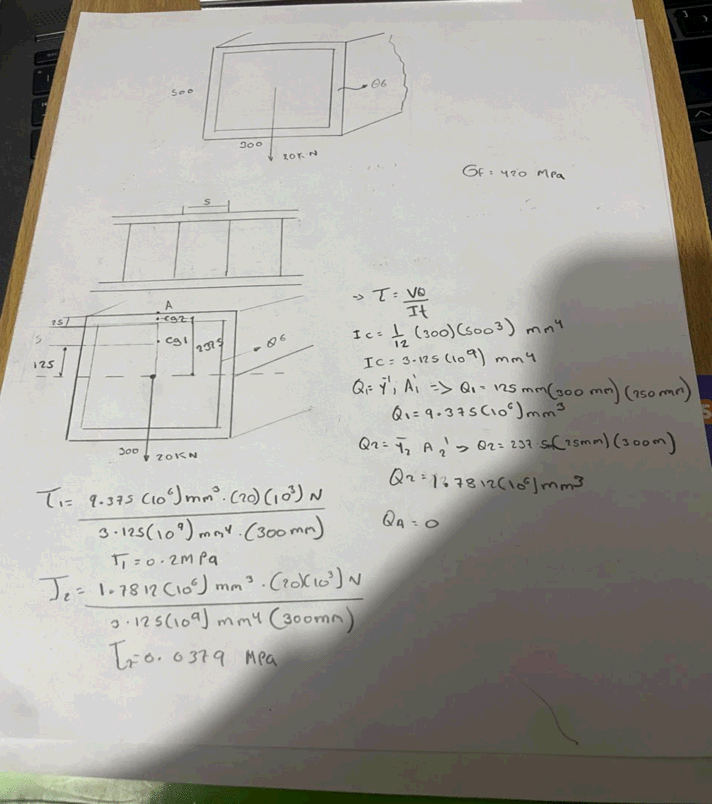 500
θ6
300
20KN
σf = 420 MPa
S
A
25
cg2
cg1
237.5
θ6
125
300
20KN
→ τ = VQ / It
Ic = 1/12 (300)(500³) mm⁴
Ic = 3.125(10⁹) mm⁴
Q1 = ȳ'1 A'1 => Q1 = 125 mm(300 mm)(250 mm)
Q1 = 9.375(10⁶)mm³
Q2 = ȳ2 A2' → Q2 = 237.5(25mm)(300m)
Q2 = 1.7812(10⁶)mm³
QA = 0
τ1 = 9.375(10⁶)mm³·(20)(10³)N / 3.125(10⁹)mm⁴·(300mm)
τ1 = 0.2MPa
τ2 = 1.7812(10⁶)mm³·(20)(10³)N / 3.125(10⁹)mm⁴(300mm)
τ2 = 0.0379 MPa